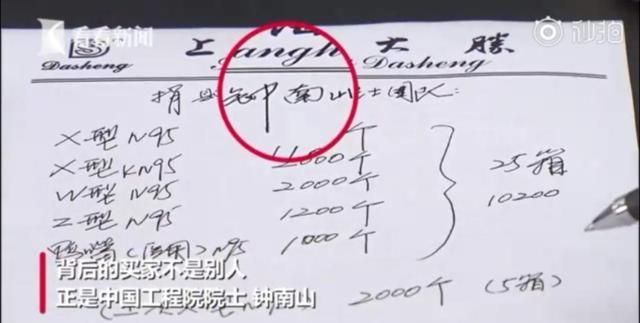 看看新闻
秒拍
上 海 大 胜
Dasheng Shanghai Dasheng
捐送钟南山院士团队:
X型 N95
X型 KN95 4000个
W型 N95 2000个
Z型 N95 1200个
鸭嘴(医用)N95 1000个
25箱
10200
2000个 (5箱)
背后的买家不是别人
正是中国工程院院士 钟南山